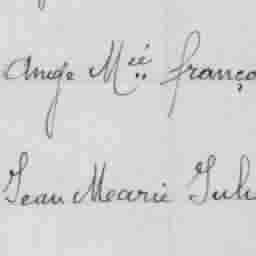 Ange Mié franço
Jean Marie Jul